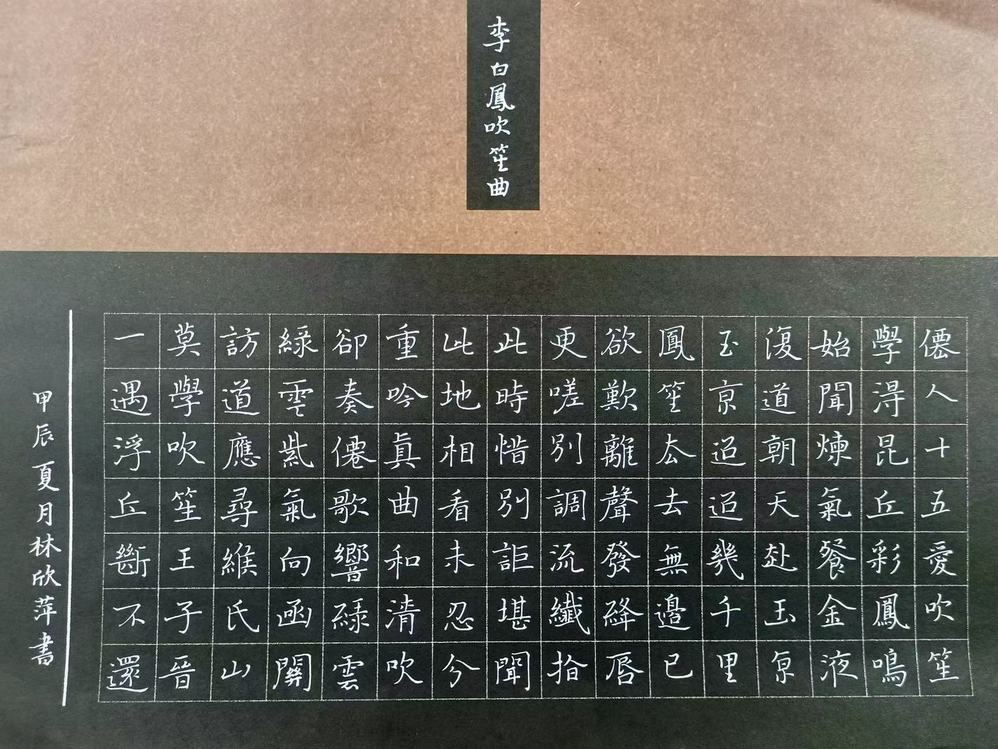 李白鳳吹笙曲
僊人十五愛吹笙
學得昆丘彩鳳鳴
始聞煉氣餐金液
復道朝天赴玉京
玉京迢迢幾千里
鳳笙去去無邊已
欲歎離聲發絳唇
更嗟別調流纖指
此時惜別詎堪聞
此地相看未忍分
重吟真曲和清吹
卻奏僊歌響綠雲
綠雲紫氣向函關
訪道應尋緱氏山
莫學吹笙王子晉
一遇浮丘斷不還
甲辰夏月林欣萍書